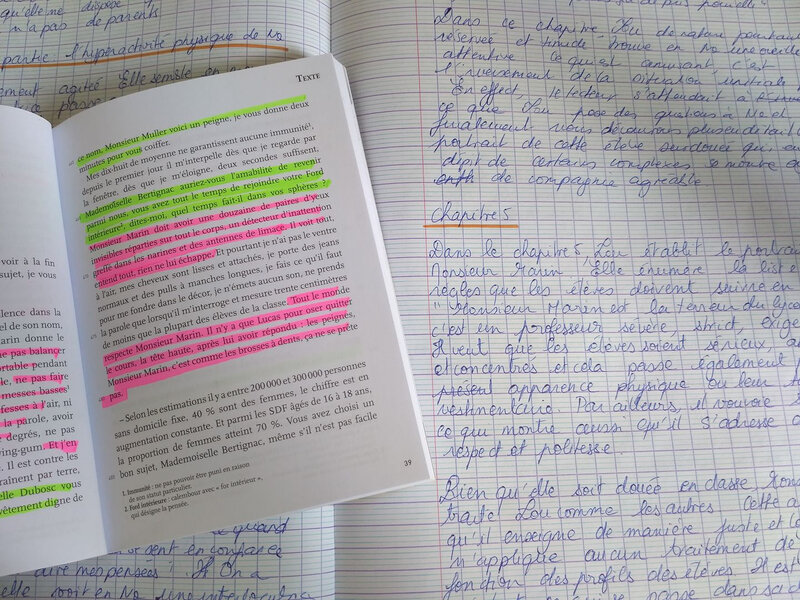 qu'elle ne dispose
n'a pas de parents
partie : l'hyperactivité physique de No
agitée Elle semble
TEXTE
ce nom, Monsieur Muller voici un peigne, je vous donne deux
minutes pour vous coiffer.
Mes dix-huit de moyenne ne garantissent aucune immunité¹,
depuis le premier jour il m'interpelle dès que je regarde par
la fenêtre, dès que je m'éloigne, deux secondes suffisent,
Mademoiselle Bertignac auriez-vous l'amabilité de revenir
parmi nous, vous avez tout le temps de rejoindre votre Ford
intérieure², dites-moi, quel temps fait-il dans vos sphères ?
Monsieur Marin doit avoir une douzaine de paires d'yeux
invisibles réparties sur tout le corps, un détecteur d'inattention
greffé dans les narines et des antennes de limace. Il voit tout,
entend tout, rien ne lui échappe. Et pourtant je n'ai pas le ventre
à l'air, mes cheveux sont lisses et attachés, je porte des jeans
normaux et des pulls à manches longues, je fais ce qu'il faut
pour me fondre dans le décor, je n'émets aucun son, ne prends
la parole que lorsqu'il m'interroge et mesure trente centimètres
de moins que la plupart des élèves de la classe. Tout le monde
respecte Monsieur Marin. Il n'y a que Lucas pour oser quitter
le cours, la tête haute, après lui avoir répondu : les peignes,
Monsieur Marin, c'est comme les brosses à dents, ça ne se prête
pas.
– Selon les estimations il y a entre 200 000 et 300 000 personnes
sans domicile fixe, 40 % sont des femmes, le chiffre est en
augmentation constante. Et parmi les SDF âgés de 16 à 18 ans,
la proportion de femmes atteint 70 %. Vous avez choisi un
bon sujet, Mademoiselle Bertignac, même s'il n'est pas facile
1. Immunité : ne pas pouvoir être puni en raison
de son statut particulier.
2. Ford intérieure : calembour avec « for intérieur »,
qui désigne la pensée.
39
voir à la fin
sujet, je vous
lence dans la
el de son nom,
Marin donne le
ne pas balancer
ortable pendant
le, ne pas faire
messes basses¹
fesses à l'air, ni
la parole, avoir
degrés, ne pas
ving-gum. Et j'en
. Il est contre les
traînent par terre,
elle Dubosc vous
vêtement digne de
quand
sent en confiance
aire mes pensées ! On a
elle soit en No une
Dans ce chapitre, Lou de nature pourtant
réservée et timide trouve en No une oreille
attentive ce qui est amusant c'est
l'inversement de la situation initiale.
En effet, le lecteur s'attendait à
ce que Lou pose des questions à No et
finalement nous découvrons plus en détail
portrait de cette élève surdouée qui, en
dépit de certains complexes se montre
de compagnie agréable.
Chapitre 5
Dans le chapitre 5, Lou établit le portrait
Monsieur Marin. Elle énumère la liste
règles que les élèves doivent suivre en
" Monsieur Marin est la terreur du lycée
c'est un professeur sévère, strict, exige
Il veut que les élèves soient sérieux,
et concentrés et cela passe également
présent apparence physique ou leur
vestimentaire. Par ailleurs, il vouvoie
ce qui montre aussi qu'il s'adresse
respect et politesse.
Bien qu'elle soit douée en classe, Mons
traite Lou comme les autres. Cette
qu'il enseigne de manière juste et
n'applique aucun traitement de
fonction des profils des élèves. Il est
passe dans sa